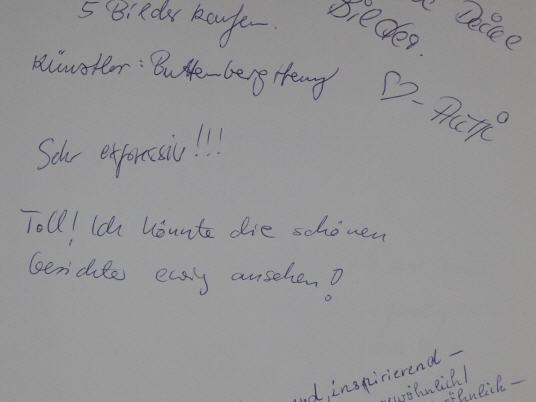 5 Bilder kaufen.
Deine
Bilder.
Künstler: Buttenberg Henry
♡-
Sehr expressiv!!!
Toll! Ich könnte die schönen
Gesichter ewig ansehen!
und, inspirierend –
gewöhnlich!
wöhnlich –